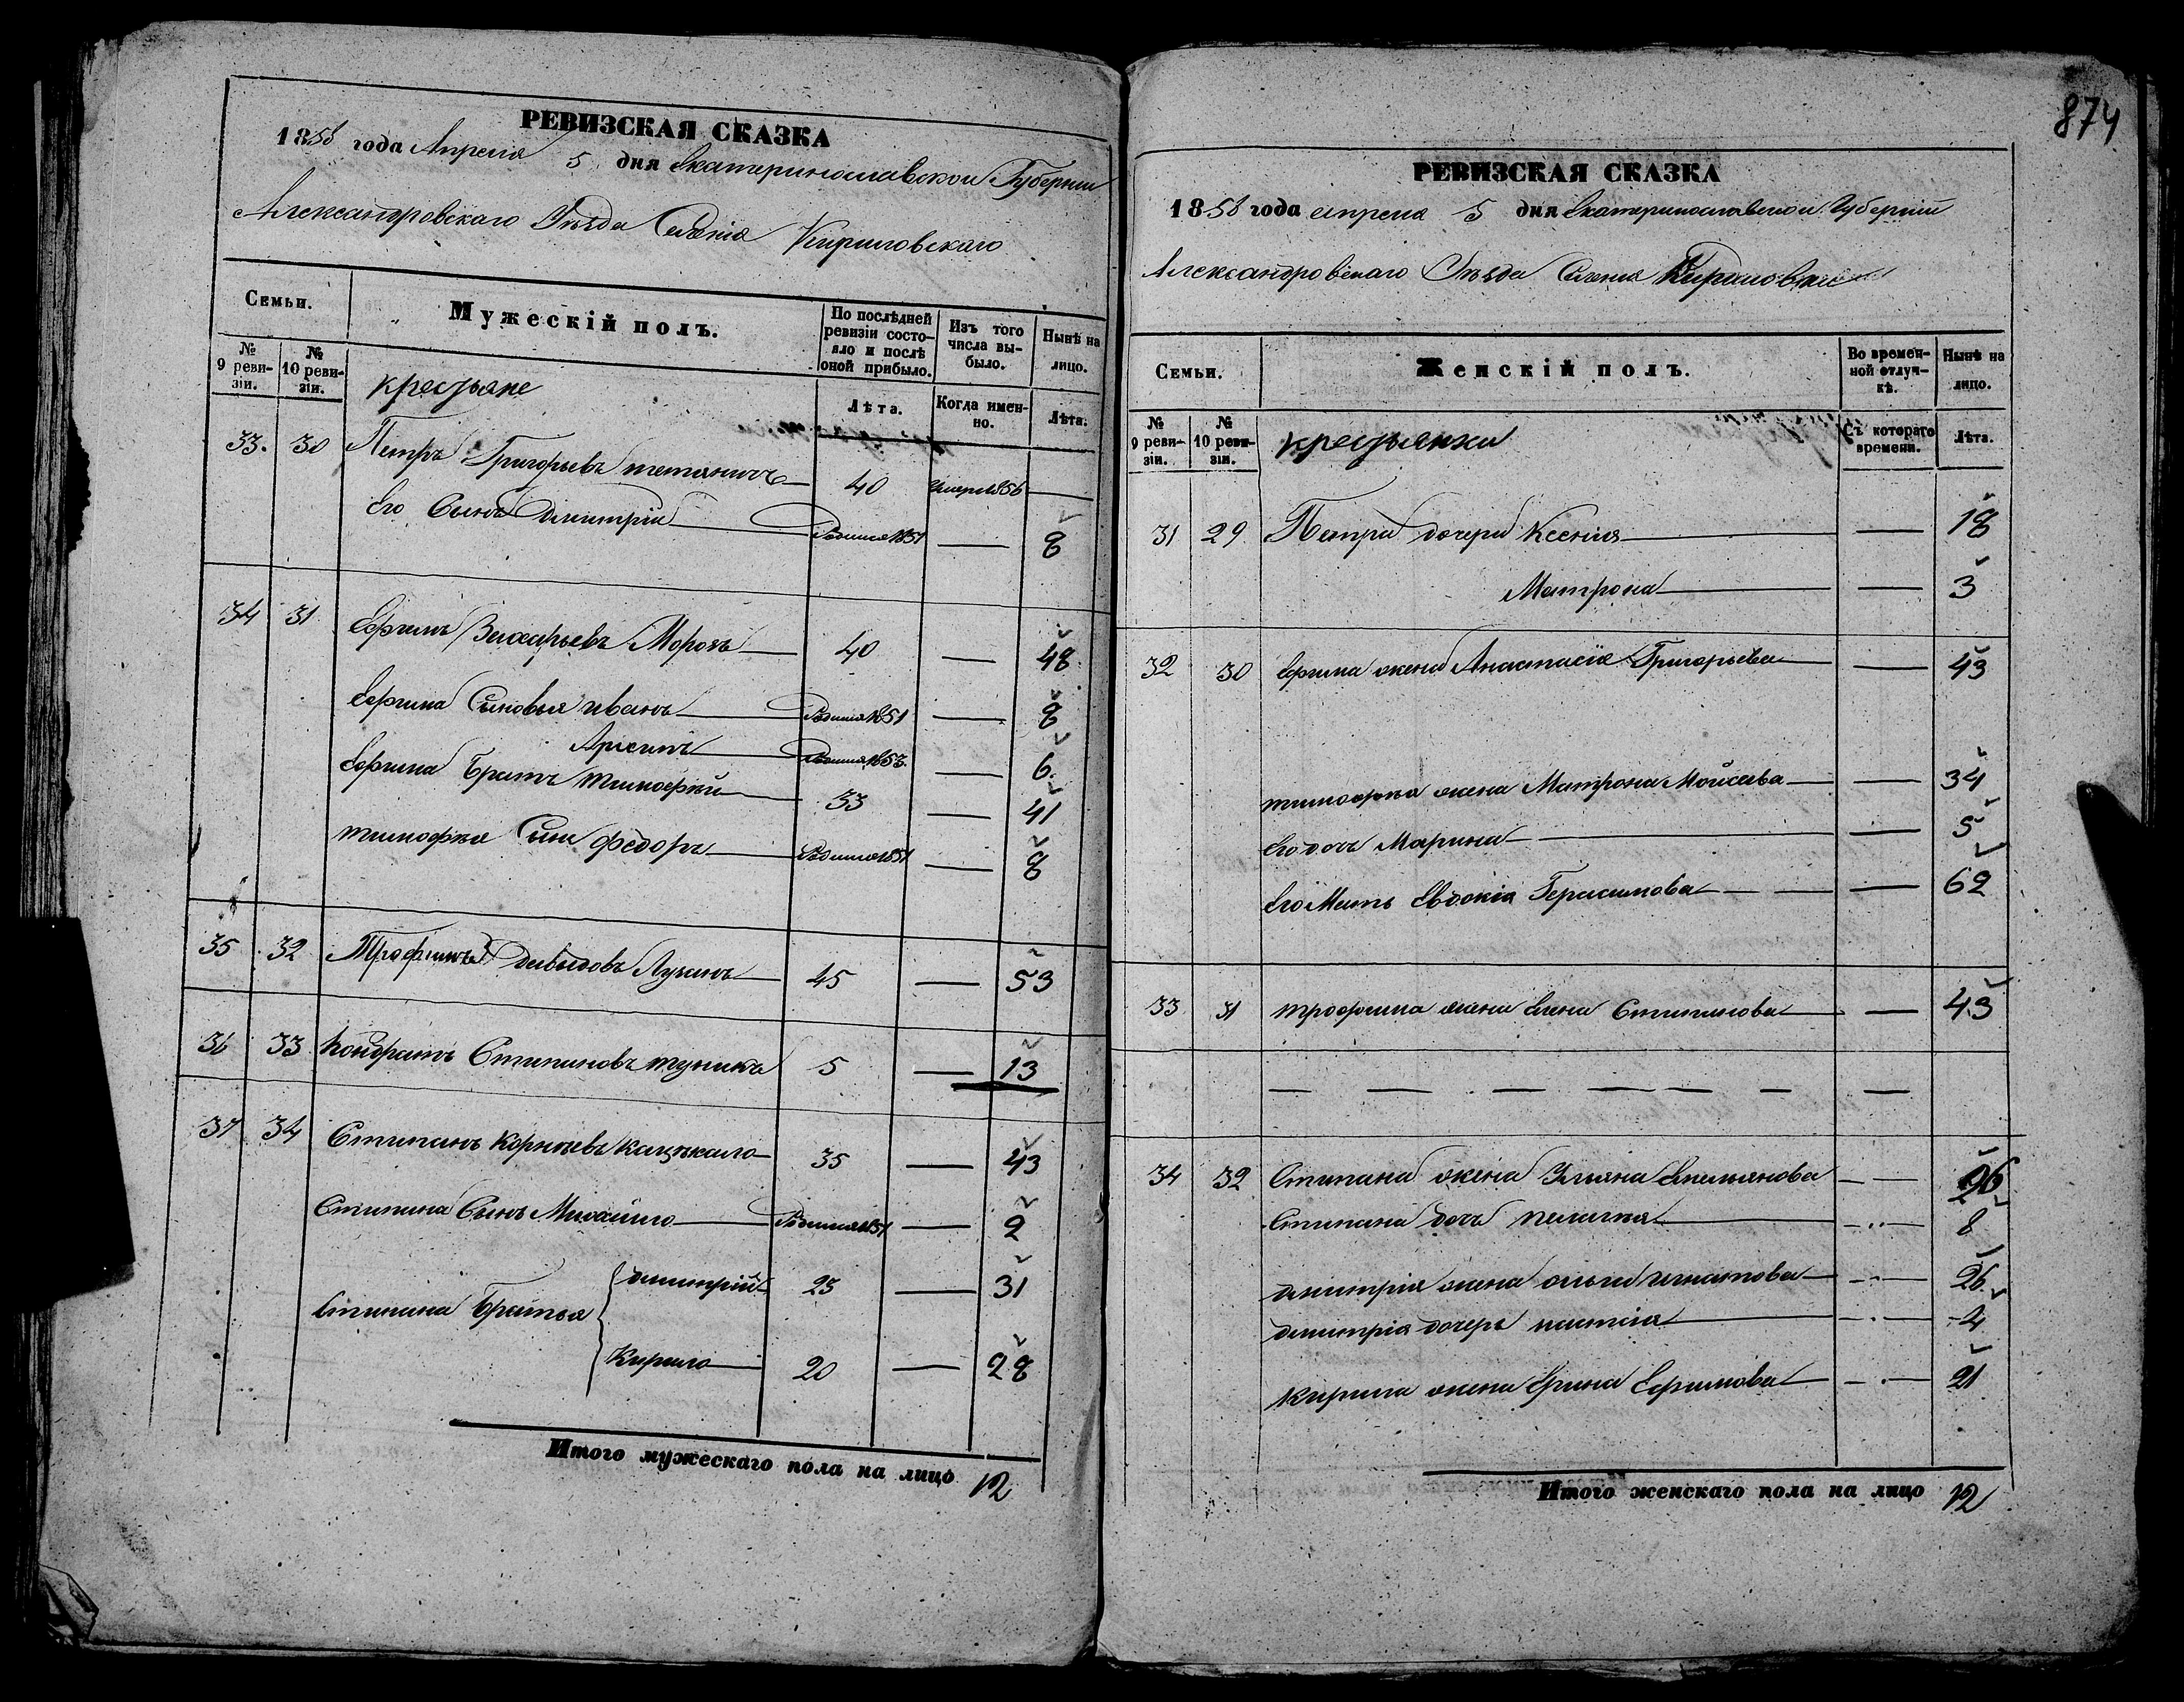 874
РЕВИЗСКАЯ СКАЗКА
1858 года Апреля 5 дня Екатеринославской Губернии
Александровскаго Уѣзда Селенія Кириловскаго
Семьи.
Мужескій полъ.
По послѣдней ревизіи состояло и послѣ оной прибыло.
Изъ того числа выбыло.
Нынѣ на лицо.
№ 9 ревизіи.
№ 10 ревизіи.
крестьяне
Лѣта.
Когда именно.
Лѣта.
33. 30 Петръ Григорьевъ 40 Умеръ 1856 —
Его Сынъ Дмитрій Родился 1851 — 8
34 31 Ефимъ Захарьевъ Морозъ 40 — 48
Ефима Сыновья Иванъ Родился 1851 — 8
Арсений 6
Ефима Братъ Тимофей 33 — 41
Тимофея Сынъ Федоръ Родился 1851 — 8
35 32 Трофимъ Давыдовъ 45 — 53
36 33 Кондратъ Степановъ 5 — 13
37 34 Степанъ Корнѣевъ 35 — 43
Степана Сынъ Михайло Родился 1851 — 2
Степана Братья Дмитрій 23 — 31
Кирило 20 — 28
Итого мужескаго пола на лицо 12
РЕВИЗСКАЯ СКАЗКА
1858 года апреля 5 дня Екатеринославской Губерніи
Александровскаго Уѣзда Селенія
Семьи.
Женскій полъ.
Во временной отлучкѣ.
Нынѣ на лицо.
№ 9 ревизіи.
№ 10 ревизіи.
крестьянки
Съ котораго времени.
Лѣта.
31 29 Петра дочери Ксенія — 18
Матрона — 3
32 30 Ефима жена Анастасія Григорьева — 43
Тимофея жена Матрона Мойсеева — 34
Его дочь Марина — 5
Его Мать Евдокія Герасимова — 62
33 31 Трофима жена Елена Степанова — 43
— — — — — — — —
34 32 Степана жена Ульяна Емельянова — 26
Степана дочь Пелагея 8
Дмитрія жена Ольга Игнатова 26
Дмитрія дочерь 4
Кирила жена Ирина Ефимова 21
Итого женскаго пола на лицо 12